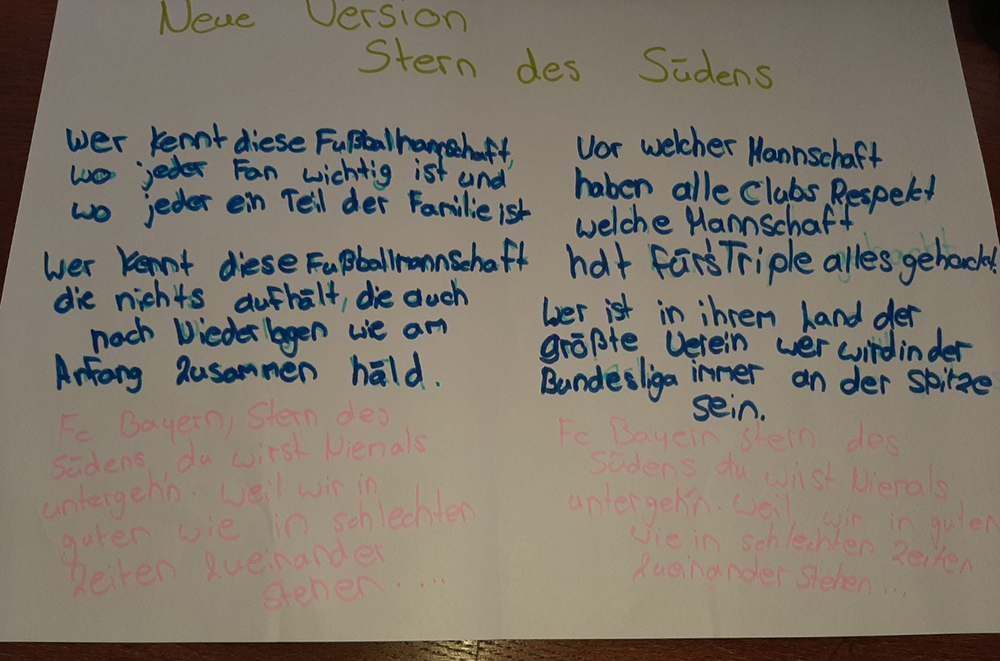 Neue Version
Stern des Südens
Wer kennt diese Fußballmannschaft,
wo jeder Fan wichtig ist und
wo jeder ein Teil der Familie ist
Wer kennt diese Fußballmannschaft
die nichts aufhält, die auch
nach Niederlagen wie am
Anfang zusammen häld.
Fc Bayern, Stern des
Südens, du wirst Niemals
untergeh'n. Weil wir in
guten wie in schlechten
Zeiten zueinander
stehen.....
Vor welcher Mannschaft
haben alle Clubs Respekt
welche Mannschaft
hat fürs Triple alles
Wer ist in ihrem Land der
größte Verein wer wird in der
Bundesliga immer an der Spitze
sein.
Fc Bayern stern des
Südens du wirst Niemals
untergeh'n. Weil wir in guten
wie in schlechten Zeiten
zueinander stehen...